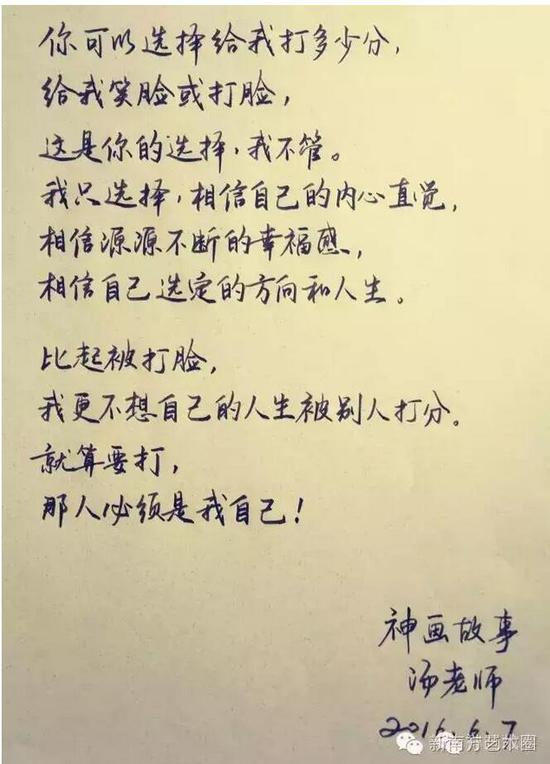 你可以选择给我打多少分,
给我笑脸或打脸,
这是你的选择,我不管。
我只选择,相信自己的内心直觉,
相信源源不断的幸福感,
相信自己选定的方向和人生。
比起被打脸,
我更不想自己的人生被别人打分。
就算要打,
那人必须是我自己!
神画故事
汤老师
2016.6.7
新南方艺术圈